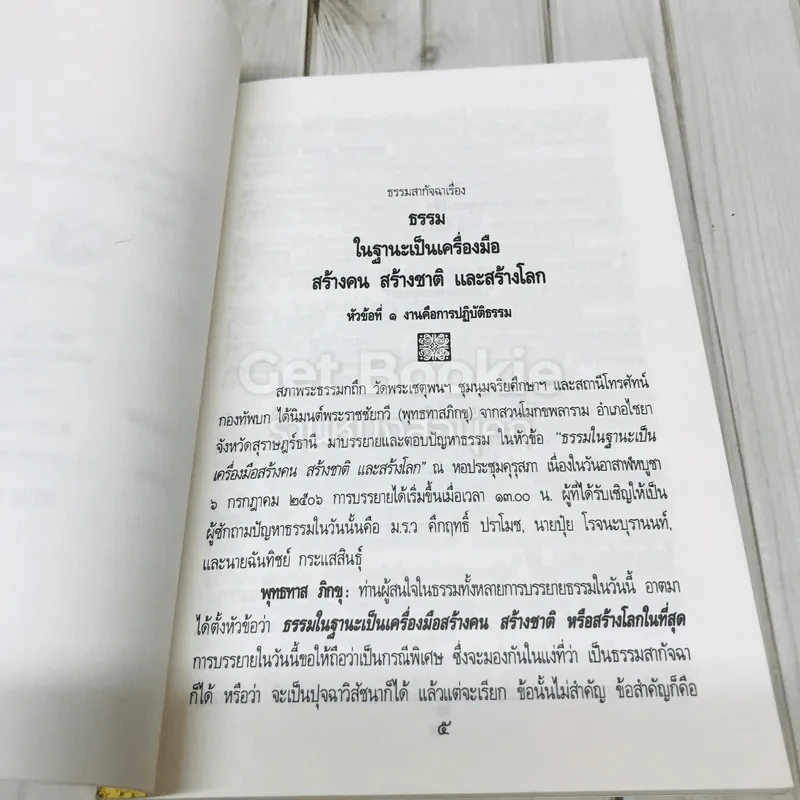 ธรรมสากัจฉาเรื่อง
ธรรม
ในฐานะเป็นเครื่องมือ
สร้างคน สร้างชาติ และสร้างโลก
หัวข้อที่ ๑ งานคือการปฏิบัติธรรม
Get Bookie
สภาพระธรรมกถึก วัดพระเชตุพนฯ ชุมนุมจริยศึกษาฯ และสถานีโทรศัทน์
กองทัพบก ได้นิมนต์พระราชชัยกวี (พุทธทาสภิกขุ) จากสวนโมกขพลาราม อำเภอไชยา
จังหวัดสุราษฎร์ธานี มาบรรยายและตอบปัญหาธรรม ในหัวข้อ “ธรรมในฐานะเป็น
เครื่องมือสร้างคน สร้างชาติ และสร้างโลก” ณ หอประชุมคุรุสภา เนื่องในวันอาสาฬหบูชา
๖ กรกฎาคม ๒๕๐๖ การบรรยายได้เริ่มขึ้นเมื่อเวลา ๑๓.๐๐ น. ผู้ที่ได้รับเชิญให้เป็น
ผู้ซักถามปัญหาธรรมในวันนั้นคือ ม.ร.ว คึกฤทธิ์ ปราโมช, นายปุ๋ย โรจนะบุรานนท์,
และนายฉันทิชย์ กระแสสินธุ์
พุทธทาส ภิกขุ: ท่านผู้สนใจในธรรมทั้งหลายการบรรยายธรรมในวันนี้ อาตมา
ได้ตั้งหัวข้อว่า ธรรมในฐานะเป็นเครื่องมือสร้างคน สร้างชาติ หรือสร้างโลกในที่สุด
การบรรยายในวันนี้ขอให้ถือว่าเป็นกรณีพิเศษ ซึ่งจะมองกันในแง่ที่ว่า เป็นธรรมสากัจฉา
ก็ได้ หรือว่า จะเป็นปุจฉาวิสัชนาก็ได้ แล้วแต่จะเรียก ข้อนั้นไม่สำคัญ ข้อสำคัญก็คือ
๕